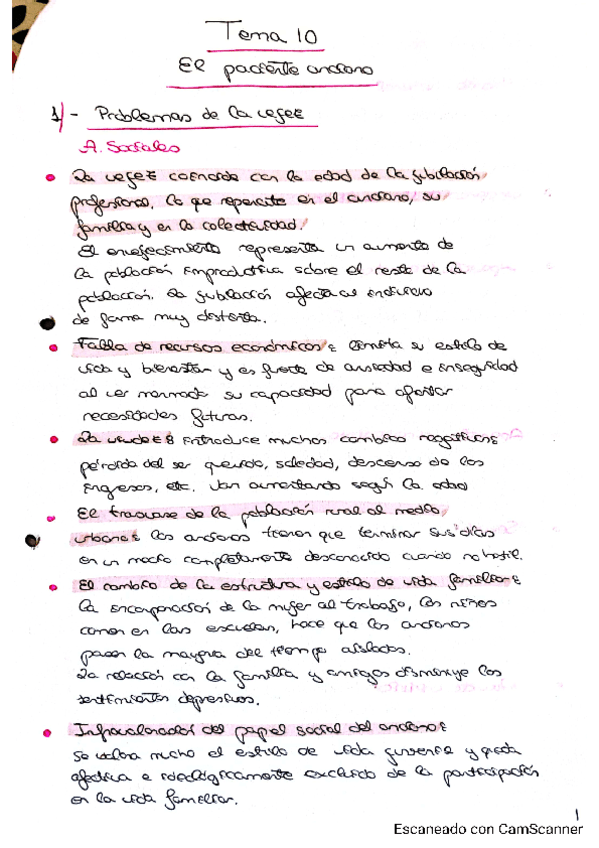 Tema 10
El paciente anciano
1) - Problemas de la vejez
A. Sociales
La vejez coincide con la edad de la jubilación
profesional, lo que repercute en el anciano, su
familia y en la colectividad.
El envejecimiento representa un aumento de
la población improductiva sobre el resto de la
población. La jubilación afecta al individuo
de forma muy distinta.
Falta de recursos económicos: limita su estilo de
vida y bienestar y es fuente de ansiedad e inseguridad
al ver mermada su capacidad para afrontar
necesidades futuras.
La viudez: introduce muchos cambios negativos:
pérdida del ser querido, soledad, descenso de los
ingresos, etc. Van aumentando según la edad
El trasvase de la población rural al medio
urbano: los ancianos tienen que terminar sus días
en un medio completamente desconocido cuando no hostil.
El cambio de la estructura y estilo de vida familiar:
la incorporación de la mujer al trabajo, los niños
comen en las escuelas, hace que los ancianos
pasen la mayoría del tiempo aislados.
La relación con la familia y amigos disminuye los
sentimientos depresivos.
Infravaloración del papel social del anciano:
se valora mucho el estilo de vida juvenil y queda
afectiva e ideológicamente excluido de la participación
en la vida familiar.
1
Escaneado con CamScanner